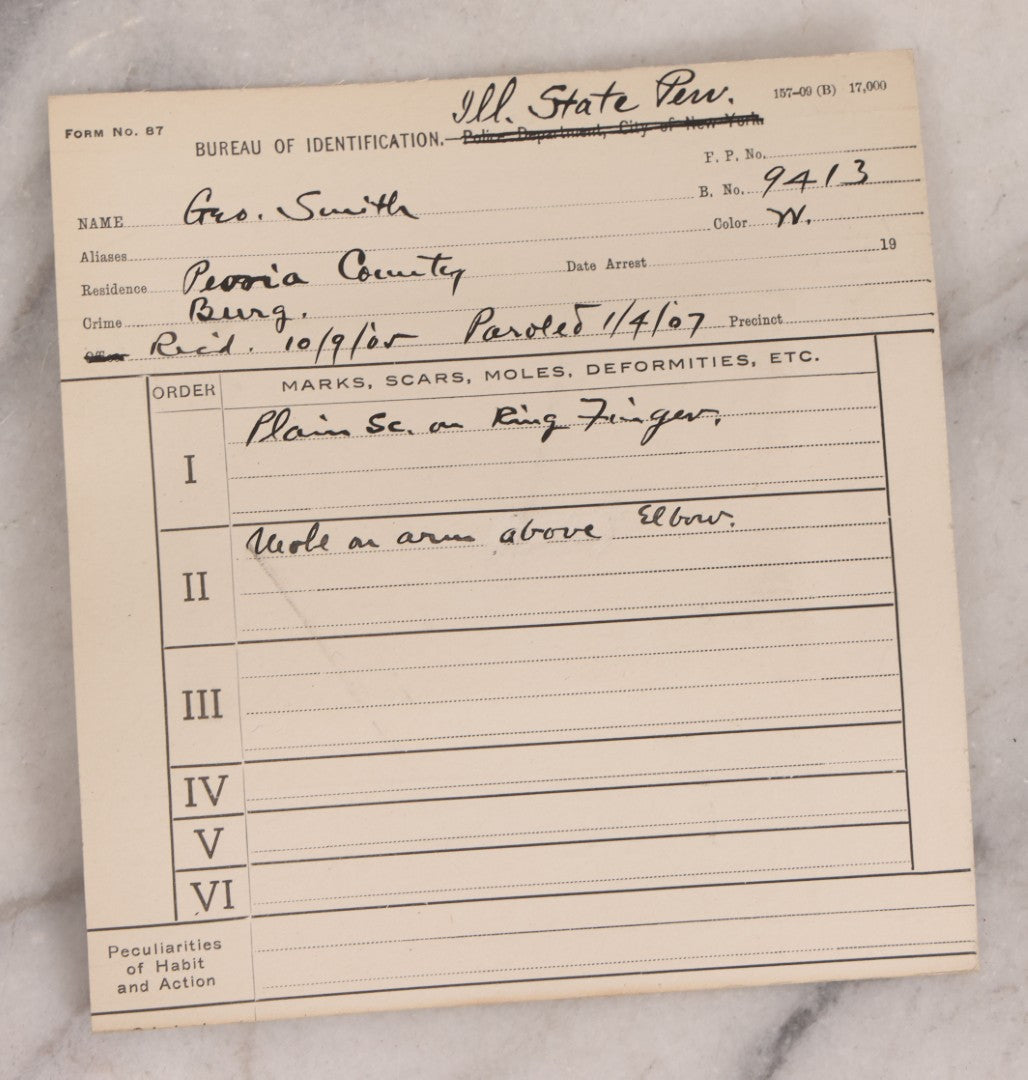 Ill. State Pen.
157-09 (B) 17,000
FORM No. 87
BUREAU OF IDENTIFICATION. Police Department, City of New York.
F. P. No.
B. No. 9413
NAME Geo. Smith
Color W.
Aliases
Residence Peoria County Date Arrest 19
Crime Burg.
Rec'd. 10/9/05 Paroled 1/4/07 Precinct
ORDER MARKS, SCARS, MOLES, DEFORMITIES, ETC.
I Plain Sc. on Ring Finger.
II Mole on arm above Elbow.
III
IV
V
VI
Peculiarities
of Habit
and Action